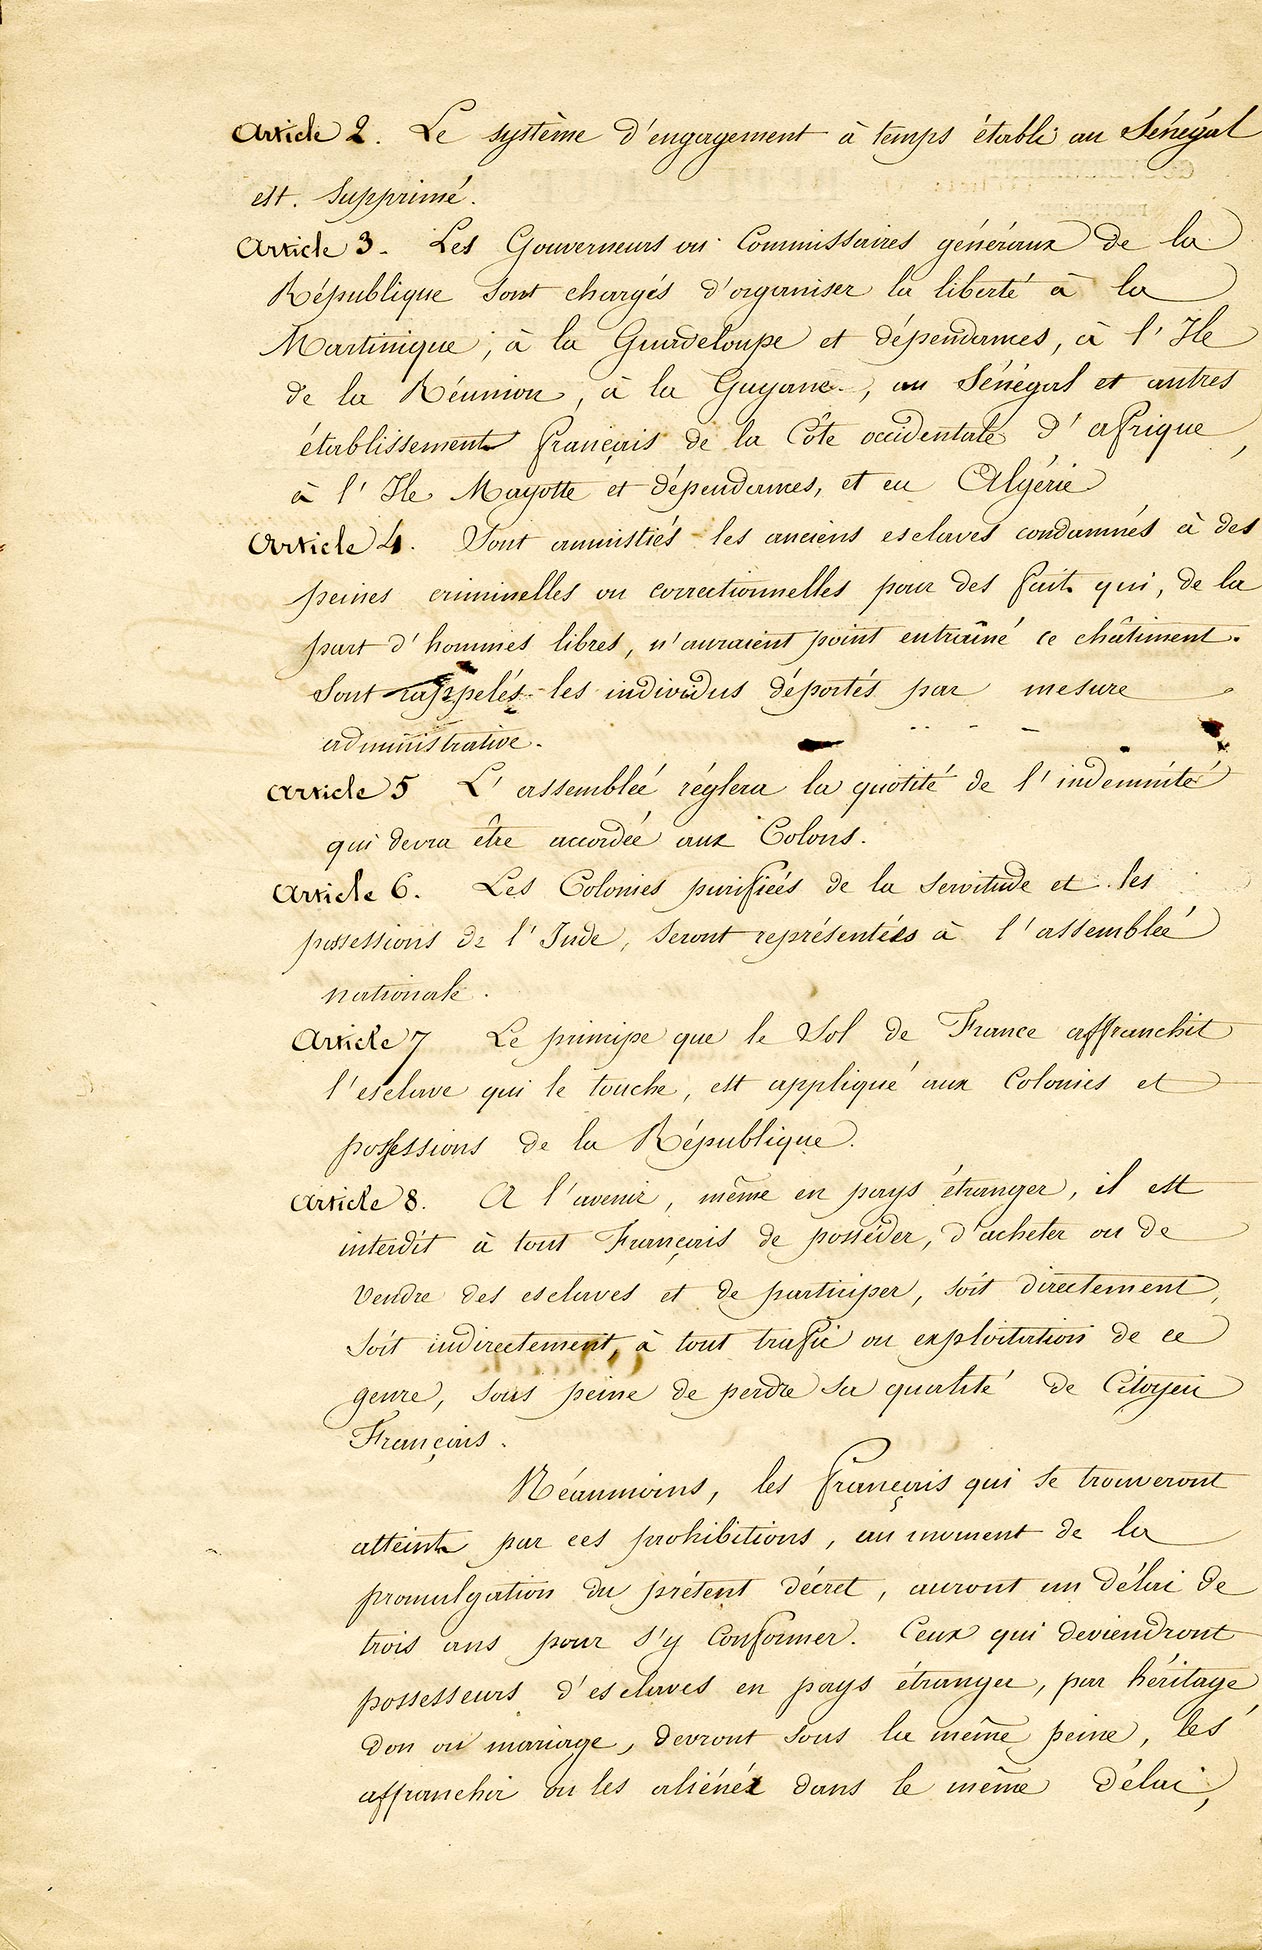 Article 2. Le système d'engagement à temps établi au Sénégal
est supprimé.
Article 3. Les Gouverneurs ou Commissaires généraux de la
République sont chargés d'organiser la liberté à la
Martinique, à la Guadeloupe et dépendances, à l'Ile
de la Réunion, à la Guyane, au Sénégal et autres
établissements français de la Côte occidentale d'afrique,
à l'Ile Mayotte et dépendances, et en Algérie
Article 4. Sont amnistiés les anciens esclaves condamnés à des
peines criminelles ou correctionnelles pour des faits qui, de la
part d'hommes libres, n'auraient point entraîné ce châtiment.
Sont rappelés les individus déportés par mesure
administrative.
Article 5 L'assemblée réglera la quotité de l'indemnité
qui devra être accordée aux Colons.
Article 6. Les Colonies purifiées de la servitude et les
possessions de l'Inde, seront représentées à l'assemblée
nationale.
Article 7 Le principe que le Sol de France affranchit
l'esclave qui le touche, est appliqué aux Colonies et
possessions de la République.
Article 8. A l'avenir, même en pays étranger, il est
interdit à tout Français de posséder, d'acheter ou de
vendre des esclaves et de participer, soit directement,
soit indirectement, à tout trafic ou exploitation de ce
genre, sous peine de perdre sa qualité de Citoyen
Français.
Néanmoins, les français qui se trouveront
atteints par ces prohibitions, au moment de la
promulgation du présent décret, auront un délai de
trois ans pour s'y Conformer. Ceux qui deviendront
possesseurs d'esclaves en pays étranger, par héritage,
don ou mariage, devront sous la même peine, les
affranchir ou les aliéner dans le même délai,